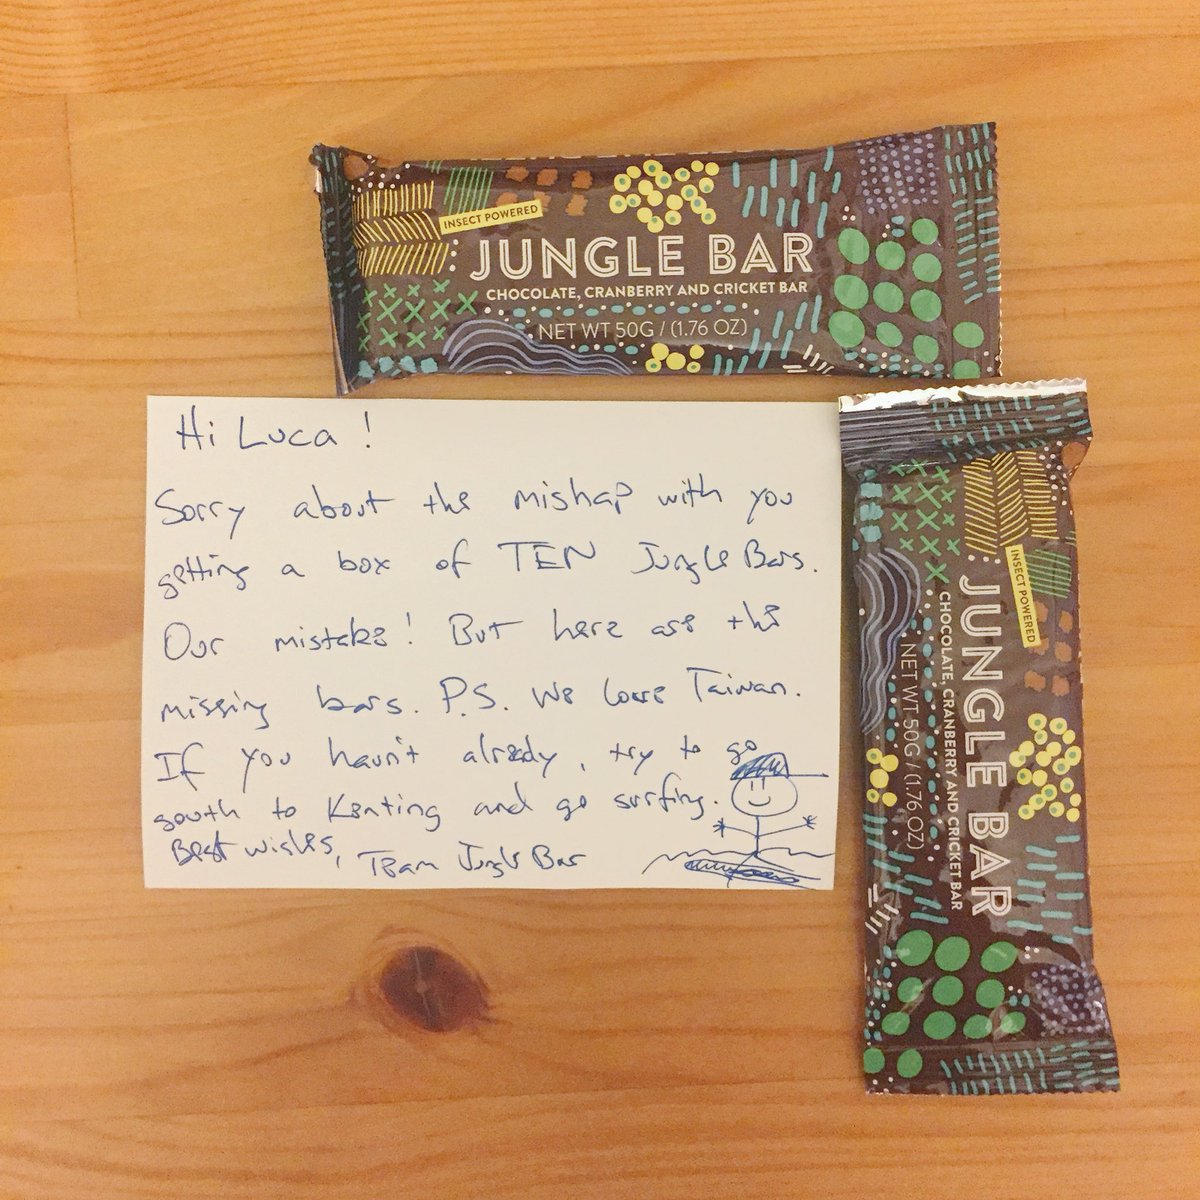 INSECT POWERED
JUNGLE BAR
CHOCOLATE, CRANBERRY AND CRICKET BAR
NET WT 50G / (1.76 OZ)
Hi Luca!
Sorry about the mishap with you
getting a box of TEN Jungle Bars.
Our mistake! But here are the
missing bars. P.S. We love Taiwan.
If you havn't already, try to go
south to Kenting and go surfing.
Best wishes, Team Jungle Bar
INSECT POWERED
JUNGLE BAR
CHOCOLATE, CRANBERRY AND CRICKET BAR
NET WT 50G / (1.76 OZ)